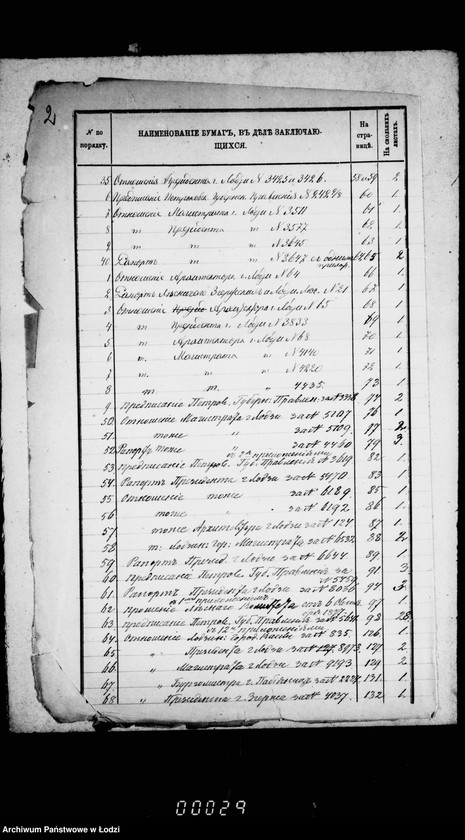 2
№ по порядку.
НАИМЕНОВАНІЕ БУМАГЪ, ВЪ ДѢЛѢ ЗАКЛЮЧАЮЩИХСЯ.
На странице.
На сколькихъ листахъ.
35 Отношенія Президента г. Лодзи N 3425 и 3426. 58 и 59 2
6 Предписаніе Петроков. Губерн. Правленія N 24248 60 1
7 Отношеніе Магистрата г. Лодзи N 3511 61 1
8 т Президента т т N 3577 62 1
9 т т т N 3645 63 1
40 Рапортъ т т N 3647 съ однимъ 64, 65 2
1 Отношеніе Архитектора г. Лодзи N 64 66 1
2 Рапортъ Лѣсничаго г. Лодзи N 21 67 1
3 Отношеніе Архитектора г. Лодзи N 15 68 1
4 т Президента г. Лодзи N 3833 69 1
5 т Архитектора г. Лодзи N 68 70 1
6 т. Магистрата " N 4140 71 1
7 т. т " N 4220 72 1
8 т. т. " 4435. 73 1
9 Предписаніе Петров. Губерн. Правлен. за N 74 2
50 Отношеніе Магистрата г. Лодзи за N 5107 76 1
51 тоже " за N 5109. 77 2
52 Рапортъ тоже за N 4460 79 3
53 предписаніе Петров. Губ. Правленія N 3619 82 1
съ 2мя приложеніями
54 Рапортъ Президента г. Лодзи за N 5470 83 1
55 Отношеніе тоже за N 6189. 85 1
56 тоже " за N 6192. 86 1
57 тоже Архитектора г. Лодзи за N 127 87 1
58 т: Лодзин: Гор: Магистрата за N 6532 88 2
59 Рапортъ Презид. г. Лодзи за N 6644. 89 1
60 предписаніе Петров. Губ. Правленія за N 5459 91 3
61 Рапортъ Президента г. Лодзи за N 8036 94 3
съ 1мъ приложеніемъ
62 прошеніе 97 1
63 предписаніе Петров. Губ. Правленія за N 98 28
съ 12ю приложеніями
64 Отношеніе Лодзин. Город. Кассы за N 835. 126 1
65 " Президента г. Лодзи за N 8973 127 2
66 " Магистрата г. Лодзи за N 9193 129 2
67 " Бургомистра г. Пабьяницъ за N 2227 131 1
68 " Президента г. Згержа за N 4037. 132 1
00029
Archiwum Państwowe w Łodzi